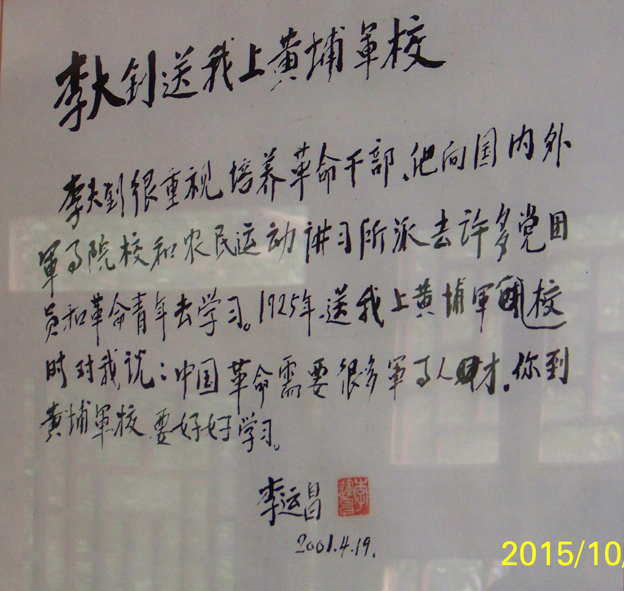 李大钊送我上黄埔軍校
李大钊很重视培养革命干部、他向国内外
軍事院校和农民运动讲习所派去许多党团
员和革命青年去学习。1925年送我上黄埔軍校
时对我说：中国革命需要很多軍事人才。你到
黄埔軍校要好好学习。
李运昌
2001.4.19.
2015/10/